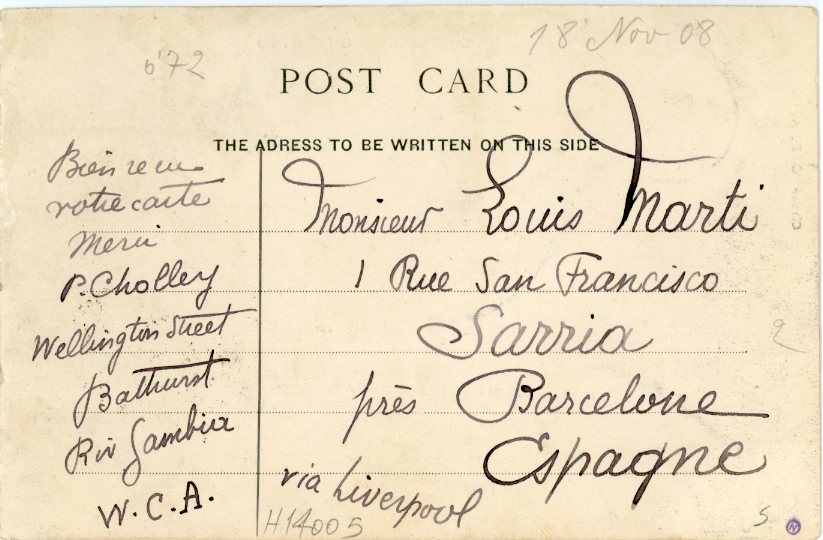 18 Nov 08
6'72
POST CARD
THE ADRESS TO BE WRITTEN ON THIS SIDE
Bien reçu
votre carte
Merci
P. Cholley
Wellington Street
Bathurst
Riv Gambia
W.C.A.
Monsieur Louis Marti
1 Rue San Francisco
Sarria
près Barcelone
Espagne
via Liverpool
H14005
S